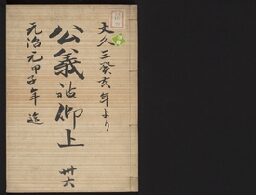 文久三癸亥年より
公義諸仰上
元治元甲子年迄
卅六